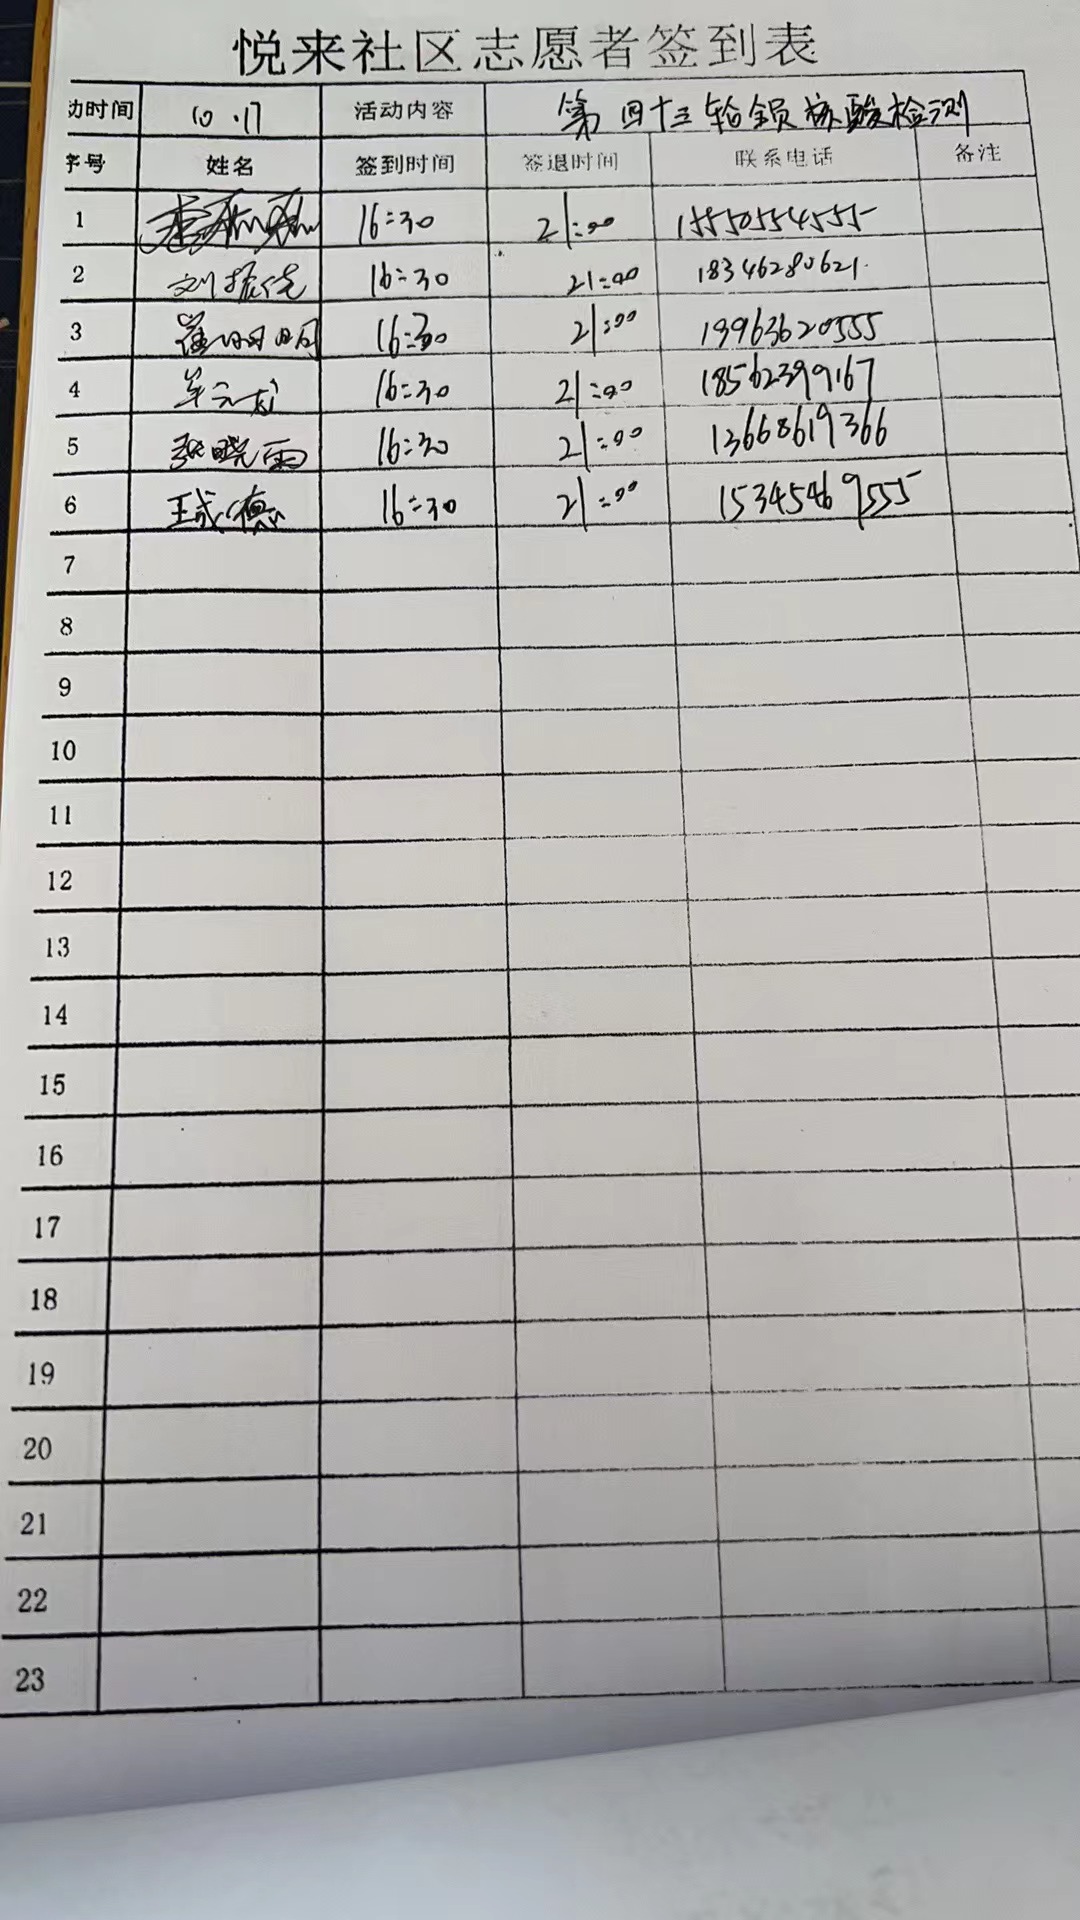 悦来社区志愿者签到表
动时间 10.17 活动内容 第四十三轮全员核酸检测
序号 姓名 签到时间 签退时间 联系电话 备注
1 16:30 21:00 15550554555
2 刘振 16:30 21:00 18346280621.
3 崔明明 16:30 21:00 19963620555
4 单元 16:30 21:00 18562399167
5 张晓雨 16:30 21:00 13668619366
6 王成德 16:30 21:00 15345469555
7
8
9
10
11
12
13
14
15
16
17
18
19
20
21
22
23